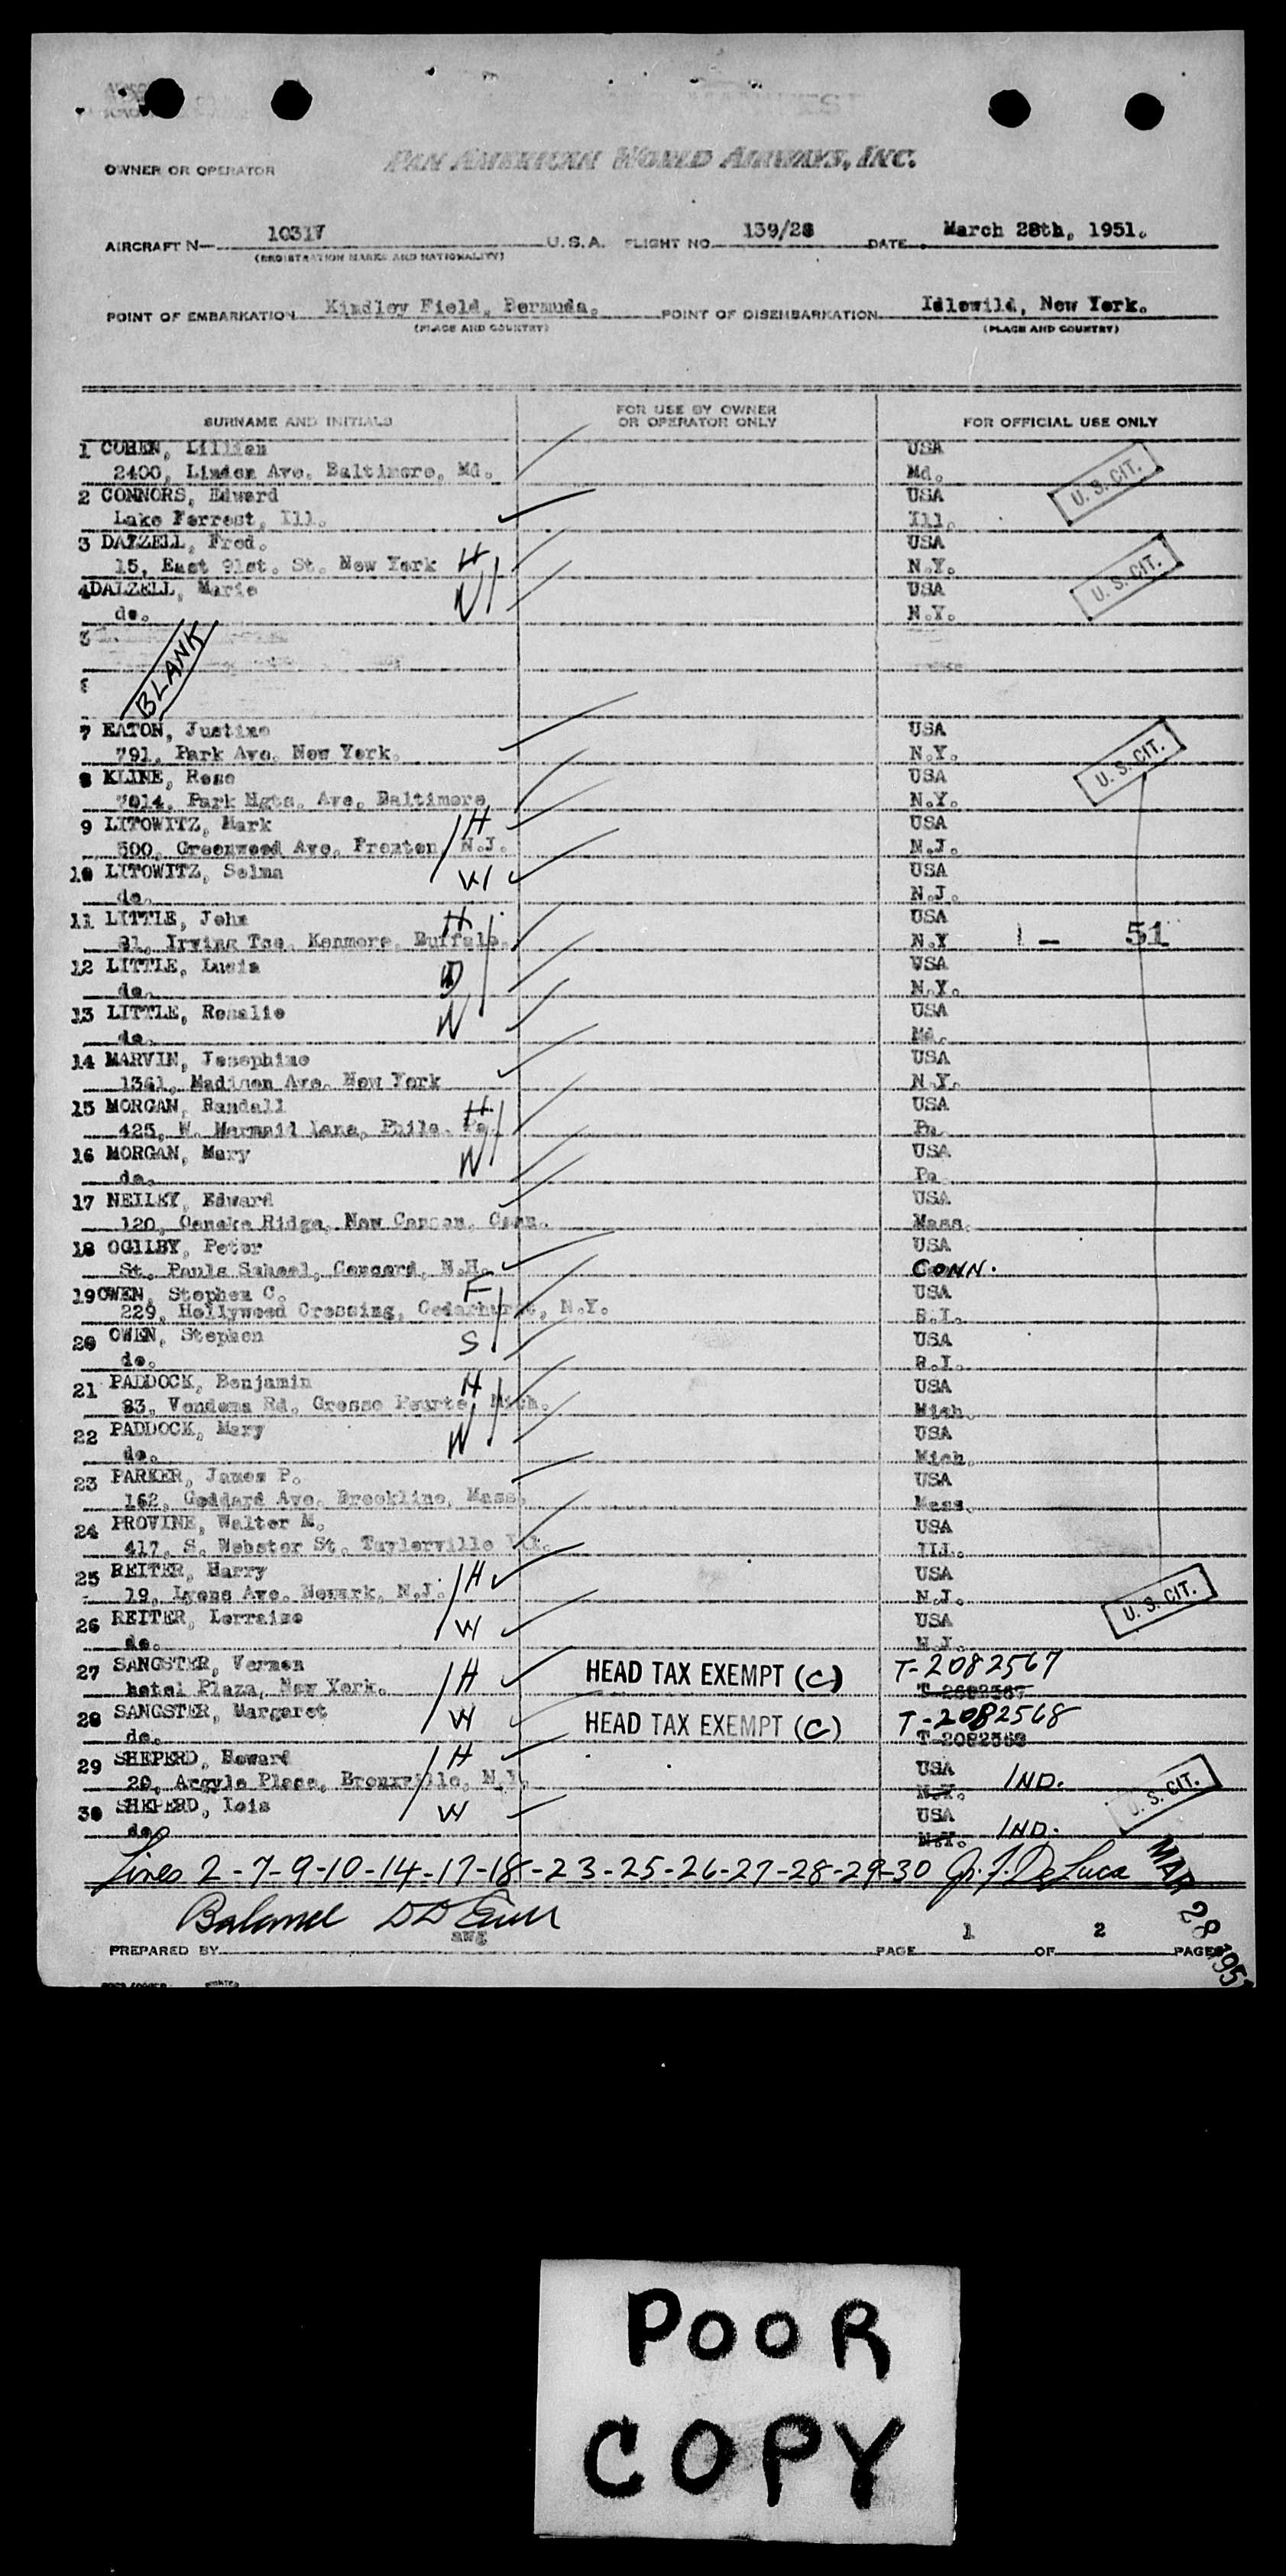 OWNER OR OPERATOR PAN AMERICAN WORLD AIRWAYS, INC.
AIRCRAFT N— 1031V U.S.A. FLIGHT NO. 139/28 DATE March 28th, 1951.
(REGISTRATION MARKS AND NATIONALITY)
POINT OF EMBARKATION Kindley Field, Bermuda. POINT OF DISEMBARKATION Idlewild, New York.
(PLACE AND COUNTRY) (PLACE AND COUNTRY)
SURNAME AND INITIALS FOR USE BY OWNER OR OPERATOR ONLY FOR OFFICIAL USE ONLY
1 COHEN, Lillian USA
2400, Linden Ave. Baltimore, Md. Md. U. S. CIT.
2 CONNORS, Edward USA
Lake Forrest, Ill. Ill.
3 DALZELL, Fred. USA
15, East 91st. St. New York H N.Y. U. S. CIT.
4 DALZELL, Marie W USA
do. N.Y.
5
BLANK
7 EATON, Justine USA
791, Park Ave. New York. N.Y. U. S. CIT.
8 KLINE, Rose USA
7014, Park Hgts. Ave. Baltimore N.Y.
9 LITOWITZ, Mark H USA
500, Greenwood Ave. Trenton, N.J. N.J.
10 LITOWITZ, Selma W USA
do. N.J.
11 LITTLE, John H USA
81, Irving Tce. Kenmore, Buffalo. N.Y 1 – 51
12 LITTLE, Lucia D USA
do. N.Y.
13 LITTLE, Rosalie W USA
do. Md.
14 MARVIN, Josephine USA
1361, Madison Ave. New York N.Y.
15 MORGAN, Randall H USA
425, W. Mermaid Lane, Phila. Pa. Pa.
16 MORGAN, Mary W USA
do. Pa.
17 NEILEY, Edward USA
120, Ridge, New Canaan, Conn. Mass.
18 OGILBY, Peter USA
St. Pauls School, Concord, N.H. CONN.
19 OWEN, Stephen C. F USA
229, Hollywood Crossing, Cedarhurst, N.Y. R.I.
20 OWEN, Stephen S USA
do. R.I.
21 PADDOCK, Benjamin H USA
83, Vendome Rd. Grosse Pourte, Mich. Mich.
22 PADDOCK, Mary W USA
do. Mich.
23 PARKER, James P. USA
162, Goddard Ave. Brookline, Mass. Mass.
24 PROVINE, Walter M. USA
417, S. Webster St. Taylorville Ill. Ill.
25 REITER, Harry H USA
19, Lyons Ave. Newark, N.J. N.J. U. S. CIT.
26 REITER, Lorraine W USA
do. N.J.
27 SANGSTER, Vernon H HEAD TAX EXEMPT (C) T-2082567
hotel Plaza, New York.
28 SANGSTER, Margaret W HEAD TAX EXEMPT (C) T-2082568
do. T-2082568
29 SHEPERD, Howard H USA IND.
20, Argyle Place, Bronxville, N.Y. N.Y. U. S. CIT.
30 SHEPERD, Lois W USA
do. N.Y. IND.
Lines 2-7-9-10-14-17-18-23-25-26-27-28-29-30 J. J. DeLuca
MAR 28 1951
Balance
awg
PREPARED BY PAGE 1 OF 2 PAGES
POOR
COPY